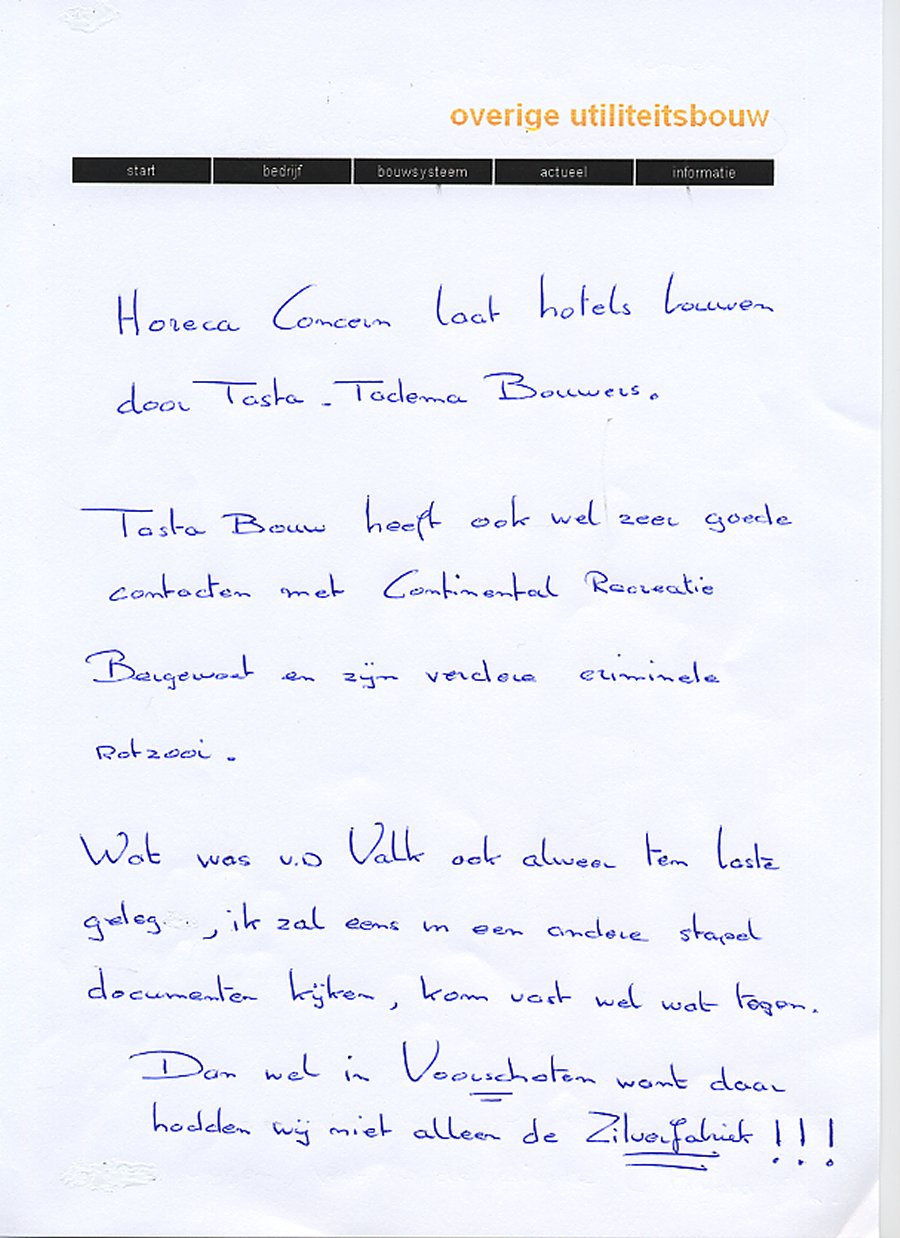 overige utiliteitsbouw
start bedrijf bouwsysteem actueel informatie
Horeca Concern laat hotels bouwen
door Tasta - Tadema Bouwers.
Tasta Bouw heeft ook wel zeer goede
contacten met Continental Recreatie
Bergewoet en zijn verdere criminele
rotzooi.
Wat was v.D Valk ook alweer ten laste
geleg , ik zal eens in een andere stapel
documenten kijken, kom vast wel wat tegen.
Dan wel in Voorschoten want daar
hadden wij niet alleen de Zilverfabriek !!!